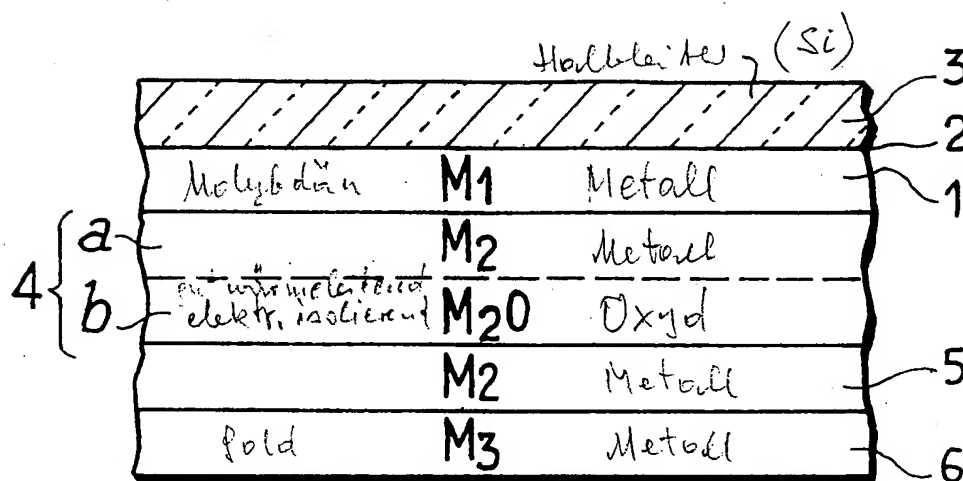 Halbleiter (Si)
3
2
Molybdän M1 Metall 1
a M2 Metall
4
gut wärmeleitend
b elektr. isolierent M2O Oxyd
M2 Metall 5
Gold M3 Metall 6